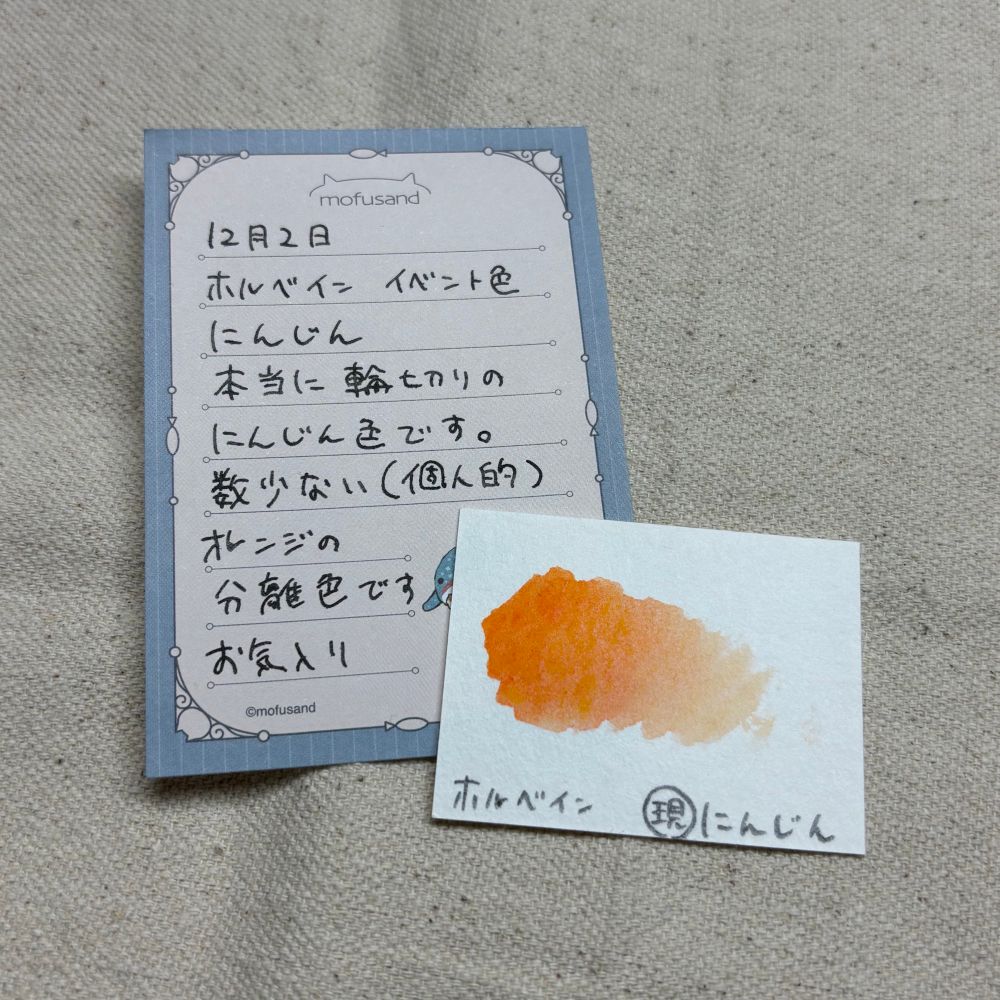 mofusand
12月2日
ホルベイン イベント色
にんじん
本当に輪切りの
にんじん色です。
数少ない(個人的)
オレンジの
分離色です
お気入り
©mofusand
ホルベイン 現 にんじん